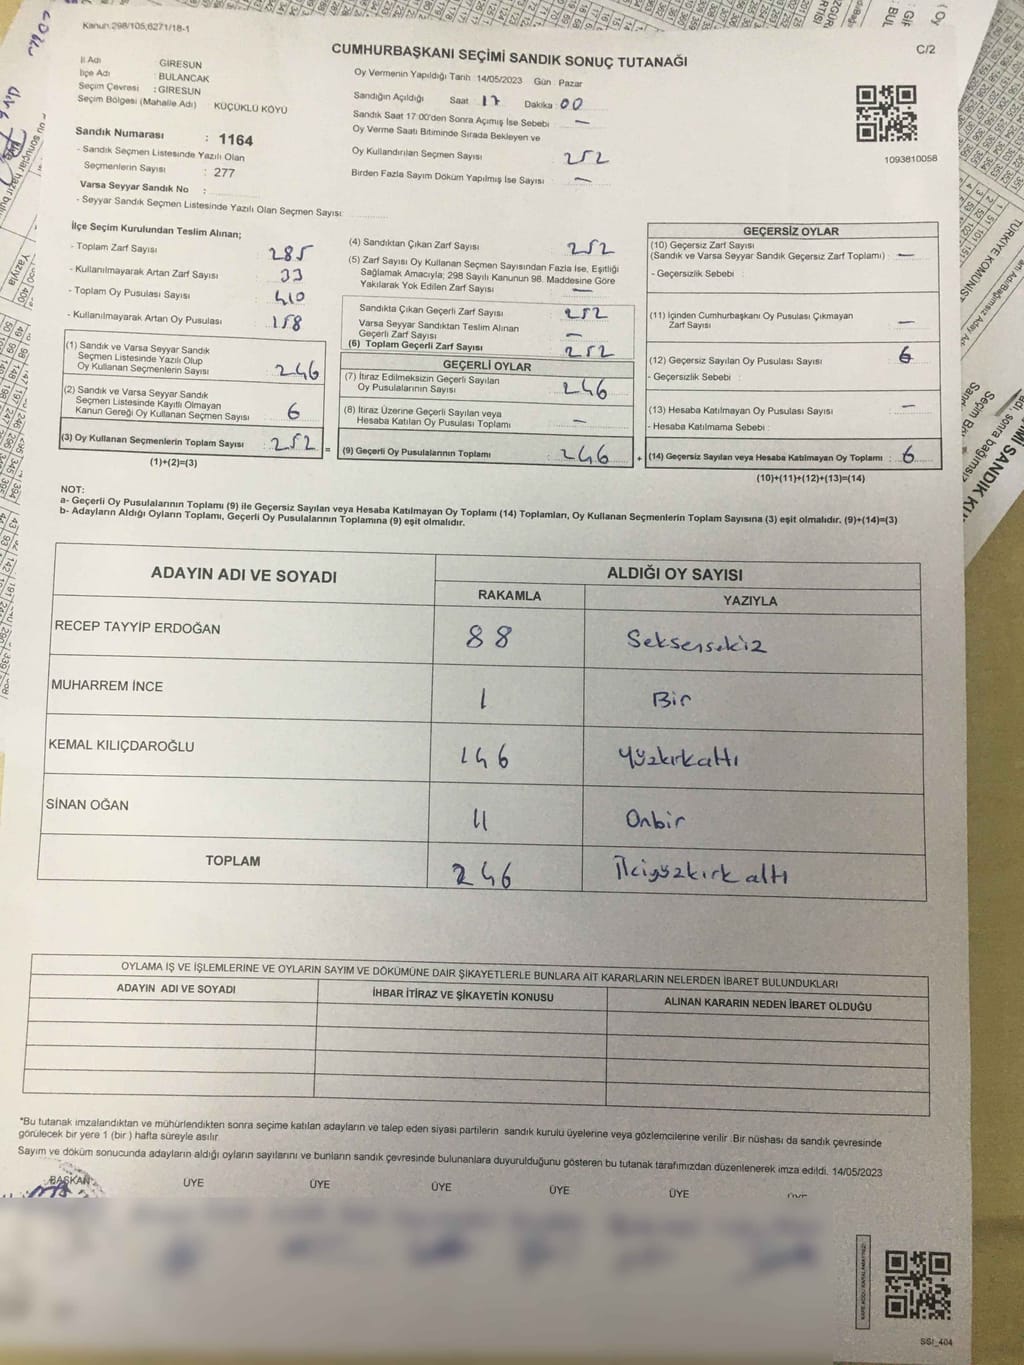 Kanun:298/105,6271/18-1
C/2
CUMHURBAŞKANI SEÇİMİ SANDIK SONUÇ TUTANAĞI
İl Adı GİRESUN
İlçe Adı : BULANCAK
Seçim Çevresi : GİRESUN
Seçim Bölgesi (Mahalle Adı) KÜÇÜKLÜ KÖYÜ
Sandık Numarası : 1164
- Sandık Seçmen Listesinde Yazılı Olan
Seçmenlerin Sayısı : 277
Varsa Seyyar Sandık No :
- Seyyar Sandık Seçmen Listesinde Yazılı Olan Seçmen Sayısı:
Oy Vermenin Yapıldığı Tarih : 14/05/2023 Gün : Pazar
Sandığın Açıldığı Saat 17 Dakika : 00
Sandık Saat 17:00'den Sonra Açımış İse Sebebi : —
Oy Verme Saati Bitiminde Sırada Bekleyen ve
Oy Kullandırılan Seçmen Sayısı : 252
Birden Fazla Sayım Döküm Yapılmış İse Sayısı : —
1093810058
İlçe Seçim Kurulundan Teslim Alınan;
- Toplam Zarf Sayısı : 285
- Kullanılmayarak Artan Zarf Sayısı : 33
- Toplam Oy Pusulası Sayısı : 410
- Kullanılmayarak Artan Oy Pusulası : 158
(1) Sandık ve Varsa Seyyar Sandık
Seçmen Listesinde Yazılı Olup
Oy Kullanan Seçmenlerin Sayısı : 246
(2) Sandık ve Varsa Seyyar Sandık
Seçmen Listesinde Kayıtlı Olmayan
Kanun Gereği Oy Kullanan Seçmen Sayısı : 6
(3) Oy Kullanan Seçmenlerin Toplam Sayısı : 252 =
(1)+(2)=(3)
(4) Sandıktan Çıkan Zarf Sayısı : 252
(5) Zarf Sayısı Oy Kullanan Seçmen Sayısından Fazla İse, Eşitliği
Sağlamak Amacıyla; 298 Sayılı Kanunun 98. Maddesine Göre
Yakılarak Yok Edilen Zarf Sayısı : —
Sandıkta Çıkan Geçerli Zarf Sayısı : 252
Varsa Seyyar Sandıktan Teslim Alınan
Geçerli Zarf Sayısı : —
(6) Toplam Geçerli Zarf Sayısı : 252
GEÇERLİ OYLAR
(7) İtiraz Edilmeksizin Geçerli Sayılan
Oy Pusulalarının Sayısı : 246
(8) İtiraz Üzerine Geçerli Sayılan veya
Hesaba Katılan Oy Pusulası Toplamı : —
(9) Geçerli Oy Pusulalarının Toplamı : 246 +
GEÇERSİZ OYLAR
(10) Geçersiz Zarf Sayısı
(Sandık ve Varsa Seyyar Sandık Geçersiz Zarf Toplamı) : —
- Geçersizlik Sebebi :
(11) İçinden Cumhurbaşkanı Oy Pusulası Çıkmayan
Zarf Sayısı : —
(12) Geçersiz Sayılan Oy Pusulası Sayısı : 6
- Geçersizlik Sebebi :
(13) Hesaba Katılmayan Oy Pusulası Sayısı : —
- Hesaba Katılmama Sebebi :
(14) Geçersiz Sayılan veya Hesaba Katılmayan Oy Toplamı : 6
(10)+(11)+(12)+(13)=(14)
NOT:
a- Geçerli Oy Pusulalarının Toplamı (9) ile Geçersiz Sayılan veya Hesaba Katılmayan Oy Toplamı (14) Toplamları, Oy Kullanan Seçmenlerin Toplam Sayısına (3) eşit olmalıdır. (9)+(14)=(3)
b- Adayların Aldığı Oyların Toplamı, Geçerli Oy Pusulalarının Toplamına (9) eşit olmalıdır.
ADAYIN ADI VE SOYADI ALDIĞI OY SAYISI
RAKAMLA YAZIYLA
RECEP TAYYİP ERDOĞAN 88 Seksensekiz
MUHARREM İNCE 1 Bir
KEMAL KILIÇDAROĞLU 146 Yüzkırkaltı
SİNAN OĞAN 11 Onbir
TOPLAM 246 İkiyüzkırk altı
OYLAMA İŞ VE İŞLEMLERİNE VE OYLARIN SAYIM VE DÖKÜMÜNE DAİR ŞİKAYETLERLE BUNLARA AİT KARARLARIN NELERDEN İBARET BULUNDUKLARI
ADAYIN ADI VE SOYADI İHBAR İTİRAZ VE ŞİKAYETİN KONUSU ALINAN KARARIN NEDEN İBARET OLDUĞU
*Bu tutanak imzalandıktan ve mühürlendikten sonra seçime katılan adayların ve talep eden siyasi partilerin sandık kurulu üyelerine veya gözlemcilerine verilir. Bir nüshası da sandık çevresinde
görülecek bir yere 1 (bir ) hafta süreyle asılır.
Sayım ve döküm sonucunda adayların aldığı oyların sayılarını ve bunların sandık çevresinde bulunanlara duyurulduğunu gösteren bu tutanak tarafımızdan düzenlenerek imza edildi. 14/05/2023
BAŞKAN ÜYE ÜYE ÜYE ÜYE ÜYE
SSI_404